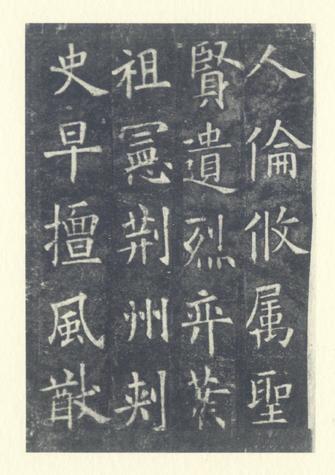 人倫攸属聖
賢遺烈弈葉
祖憲荆州刾
史早擅風猷